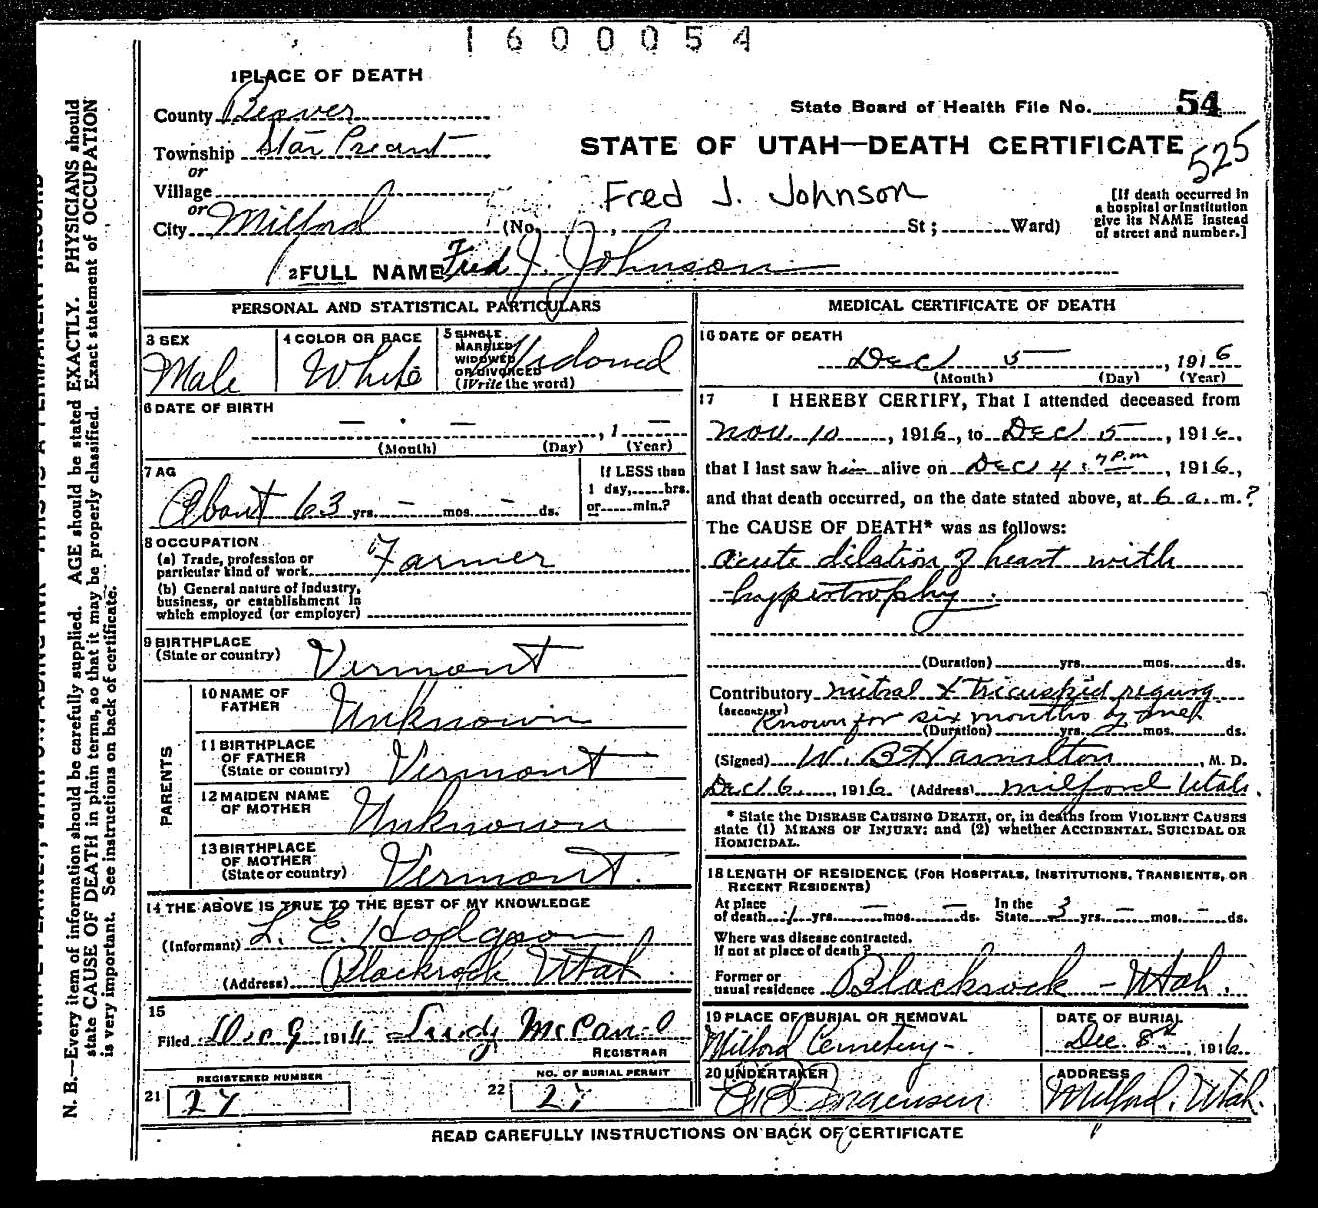 1600054
1 PLACE OF DEATH
County Beaver
State Board of Health File No. 54
Township Star Precint
STATE OF UTAH—DEATH CERTIFICATE
525
or
Village
Fred J. Johnson
[If death occurred in
a hospital or institution
give its NAME instead
of street and number.]
or
City Milford (No. , St; Ward)
2 FULL NAME Fred J. Johnson
PERSONAL AND STATISTICAL PARTICULARS
3 SEX
Male
4 COLOR OR RACE
White
5 SINGLE,
MARRIED,
WIDOWED
OR DIVORCED
(Write the word)
Widowed
6 DATE OF BIRTH
— . — , 1 —
(Month) (Day) (Year)
7 AG
About 63 yrs. - mos. - ds.
If LESS than
1 day, hrs.
or min.?
8 OCCUPATION
(a) Trade, profession or
particular kind of work Farmer
(b) General nature of industry,
business, or establishment in
which employed (or employer)
9 BIRTHPLACE
(State or country) Vermont
PARENTS
10 NAME OF
FATHER Unknown
11 BIRTHPLACE
OF FATHER
(State or country) Vermont
12 MAIDEN NAME
OF MOTHER Unknown
13 BIRTHPLACE
OF MOTHER
(State or country) Vermont.
14 THE ABOVE IS TRUE TO THE BEST OF MY KNOWLEDGE
(Informant) L. E. Hodgson
(Address) Blackrock Utah
15
Filed Dec 9 191
REGISTRAR
21 REGISTERED NUMBER
27
22 NO. OF BURIAL PERMIT
27
MEDICAL CERTIFICATE OF DEATH
16 DATE OF DEATH
Dec 5 , 1916
(Month) (Day) (Year)
17 I HEREBY CERTIFY, That I attended deceased from
Nov. 10 , 1916, to Dec 5 , 1916,
that I last saw him alive on Dec 4, 7 P.m , 1916,
and that death occurred, on the date stated above, at 6 a. m.?
The CAUSE OF DEATH* was as follows:
acute dilation of heart with
hypertrophy.
(Duration) yrs. mos. ds.
Contributory mitral & tricuspid regurg
(SECONDARY) Known for six months by me
(Duration) yrs. mos. ds.
(Signed) W. B Hamilton , M. D.
Dec 6 , 1916. (Address) Milford Utah.
* State the DISEASE CAUSING DEATH, or, in deaths from VIOLENT CAUSES
state (1) MEANS OF INJURY: and (2) whether ACCIDENTAL, SUICIDAL OR
HOMICIDAL.
18 LENGTH OF RESIDENCE (FOR HOSPITALS, INSTITUTIONS, TRANSIENTS, OR
RECENT RESIDENTS)
At place
of death 1 yrs. — mos. — ds.
In the
State 3 yrs. - mos. - ds.
Where was disease contracted,
If not at place of death?
Former or
usual residence Blackrock - Utah.
19 PLACE OF BURIAL OR REMOVAL
Milford Cemetery-
DATE OF BURIAL
Dec. 8th, 1916.
20 UNDERTAKER
Jorgensen
ADDRESS
Milford, Utah.
READ CAREFULLY INSTRUCTIONS ON BACK OF CERTIFICATE
N. B.—Every item of information should be carefully supplied. AGE should be stated EXACTLY. PHYSICIANS should
state CAUSE OF DEATH in plain terms, so that it may be properly classified. Exact statement of OCCUPATION
is very important. See instructions on back of certificate.